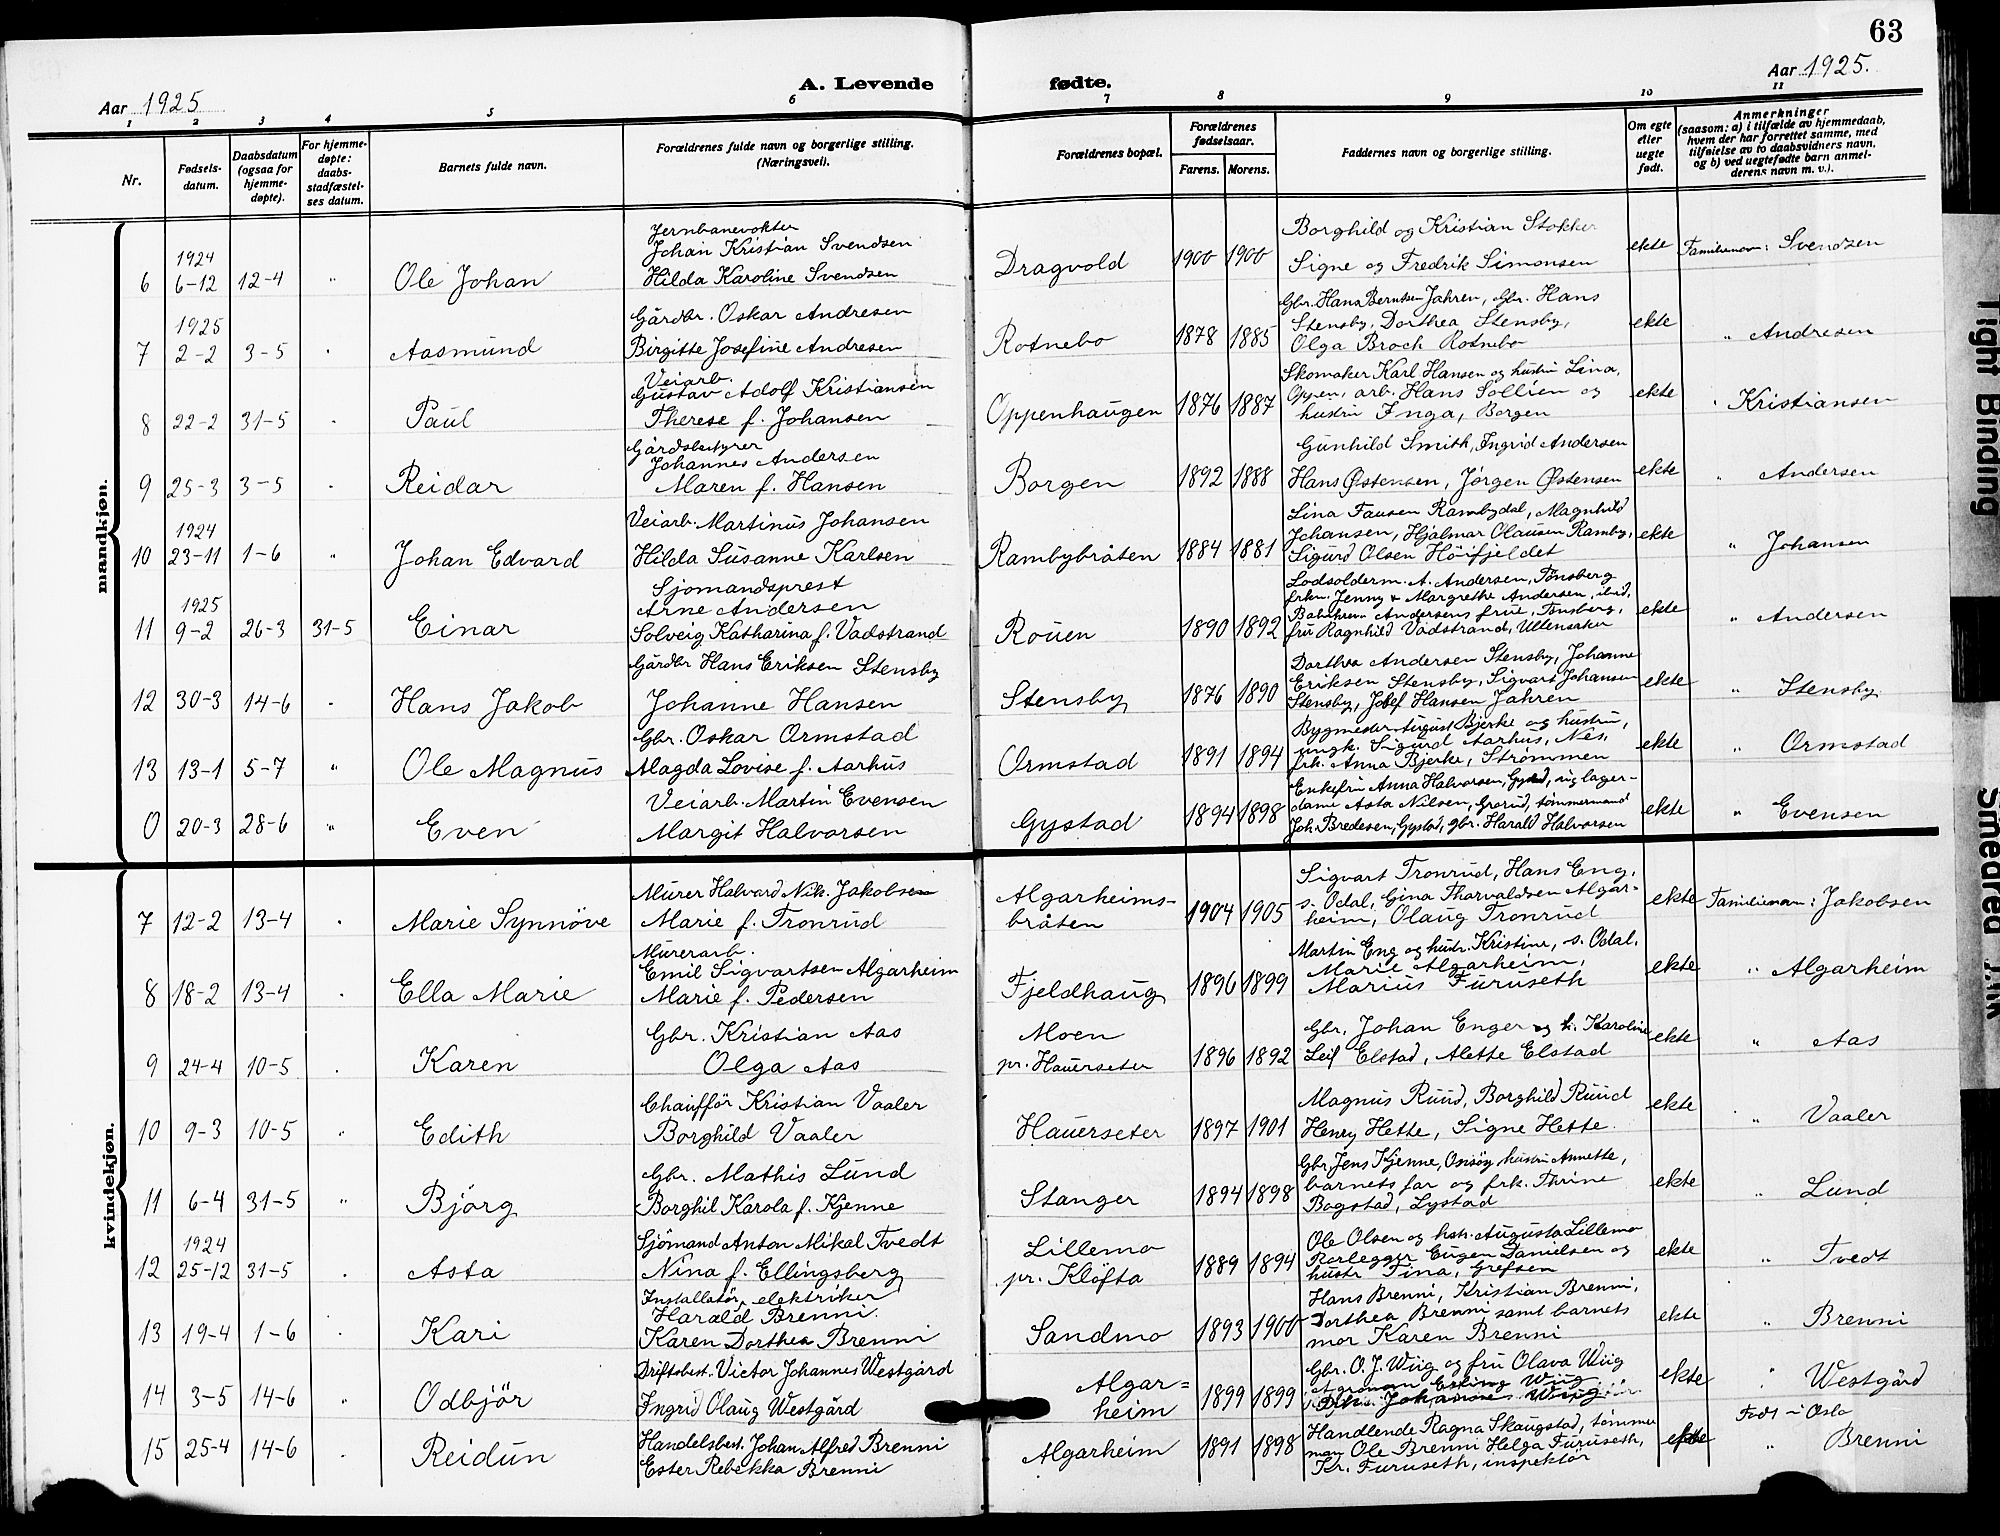 63
A. Levende fødte.
Aar 1925
Aar 1925.
1 2 3 4 5 6 7 8 9 10 11
Nr.
Fødsels-
datum.
Daabsdatum
(ogsaa for
hjemme-
døpte).
For hjemme-
døpte:
daabs-
stadfæstel-
ses datum.
Barnets fulde navn.
Forældrenes fulde navn og borgerlige stilling.
(Næringsvei).
Forældrenes bopæl.
Forældrenes
fødselsaar.
Farens. Morens.
Faddernes navn og borgerlige stilling.
Om egte
eller
uegte
født.
Anmerkninger
(saasom: a) i tilfælde av hjemmedaab,
hvem der har forrettet samme, med
tilføielse av to daabsvidners navn,
og b) ved uegtefødte barn anmel-
derens navn m. v.).
mandkjøn.
6
1924
6-12 12-4 "
Ole Johan
Jernbanevokter
Johan Kristian Svendsen
Hilda Karoline Svendsen
Dragvold
1900 1900
Borghild og Kristian Stokker
Signe og Fredrik Simonsen
ekte
Familienavn: Svendsen
7
1925
2-2 3-5 "
Aasmund
Gårdbr. Oskar Andresen
Birgitte Josefine Andresen
Rotnebo
1878 1885
Gbr. Hans Berntsen Jahren, Gbr. Hans
Stensby, Dorthea Stensby,
Olga Broch Rotnebo
ekte
" Andresen
8
22-2 31-5 "
Paul
Veiarb.
Gustav Adolf Kristiansen
Therese f. Johansen
Oppenhaugen
1876 1887
Skomaker Karl Hansen og hustru Lina,
Oppen, arb. Hans Sollien og
hustru Inga, Borgen
ekte
" Kristiansen
9
25-3 3-5 "
Reidar
Gårdsbestyrer
Johannes Andersen
Maren f. Hansen
Borgen
1892 1888
Gunhild Smith, Ingrid Andersen
Hans Østensen, Jørgen Østensen
ekte
" Andersen
10
1924
23-11 1-6 "
Johan Edvard
Veiarb. Martinus Johansen
Hilda Susanne Karlsen
Rambybråten
1884 1881
Lina Fausen Rambydal, Magnhild
Johansen, Hjalmar Olausen Ramby,
Sigurd Olsen Höifjeldet
ekte
" Johansen
11
1925
9-2 26-3 31-5
Einar
Sjømandsprest
Arne Andersen
Solveig Katharina f. Vadstrand
Rouen
1890 1892
Lodsolderm. A. Andersen, Tønsberg
frkn. Jenny & Margrethe Andersen, ibid,
Andersens frue, Tønsberg,
fru Ragnhild Vadstrand, Ullensaker
ekte
" Andersen
12
30-3 14-6 "
Hans Jakob
Gårdbr Hans Eriksen Stensby
Johanne Hansen
Stensby
1876 1890
Dorthea Andersen Stensby, Johanne
Eriksen Stensby, Sigvart Johansen
Stensby, Josef Hansen Jahren
ekte
" Stensby
13
13-1 5-7 "
Ole Magnus
Gbr. Oskar Ormstad
Magda Lovise f. Aarhus
Ormstad
1891 1894
Bygmester August Bjerke og hustru,
ungk. Sigurd Aarhus, Nes,
frk. Anna Bjerke, Strømmen
ekte
" Ormstad
0
20-3 28-6 "
Even
Veiarb. Martin Evensen
Margit Halvorsen
Gystad
1894 1898
Enkefru Anna Halvorsen, Gystad, ug lager-
dame Asta Nilsen, Grorud, tømmermand
Joh. Bredesen, Gystad, gbr. Harald Halvorsen
ekte
" Evensen
kvindekjøn.
7
12-2 13-4 "
Marie Synnöve
Murer Halvard Nik. Jakobsen
Marie f. Tronrud
Algarheims-
bråten
1904 1905
Sigvart Tronrud, Hans Eng,
s. Odal, Gina Thorvaldsen Algar-
heim, Olaug Tronrud
ekte
Familienavn: Jakobsen
8
18-2 13-4 "
Ella Marie
Murerarb.
Emil Sigvartsen Algarheim
Marie f. Pedersen
Fjeldhaug
1896 1899
Martin Eng og hustr. Kristine, s. Odal,
Marie Algarheim,
Marius Furuseth
ekte
" Algarheim
9
24-4 10-5 "
Karen
Gbr. Kristian Aas
Olga Aas
Moen
pr. Hauerseter
1896 1892
Gbr. Johan Enger og h. Karoline
Leif Elstad, Alette Elstad
ekte
" Aas
10
9-3 10-5 "
Edith
Chaufför Kristian Vaaler
Borghild Vaaler
Hauerseter
1897 1901
Magnus Ruud, Borghild Ruud
Henry Hette, Signe Hette.
ekte
" Vaaler
11
6-4 31-5 "
Björg
Gbr. Mathis Lund
Borghil Karola f. Kjenne
Stanger
1894 1898
Gbr. Jens Kjenne, hustru Annette,
barnets far og frk. Thrine
Bogstad, Lystad
ekte
" Lund
12
1924
25-12 31-5 "
Asta
Sjömand Anton Mikal Tvedt
Nina f. Ellingsberg
Lillemo
pr. Klöfta
1889 1894
Ole Olsen og hstr. Augusta Lillemo
Rørlegger Eugen Danielsen og
hustr Tina, Grefsen
ekte
" Tvedt
13
19-4 1-6 "
Kari
Installatör, elektriker
Harald Brenni.
Karen Dorthea Brenni
Sandmo
1893 1900
Hans Brenni, Kristian Brenni,
Dorthea Brenni samt barnets
mor Karen Brenni
ekte
" Brenni
14
3-5 14-6 "
Odbjör
Driftsbest. Victor Johannes Westgård
Ingrid Olaug Westgård
Algar=
heim
1899 1899
Gbr. O. J. Wiig og fru Olava Wiig
Agronom Wiig
Wiig
ekte
" Westgård
15
25-4 14-6
Reidun
Handelsbest. Johan Alfred Brenni
Ester Rebekka Brenni
Algarheim
1891 1898
Handlende Ragna Skaugstad, tømmer
man Ole Brenni Helga Furuseth,
Kr. Furuseth, inspektør
ekte
Født i Oslo
" Brenni
Tight Binding
Smeared Ink